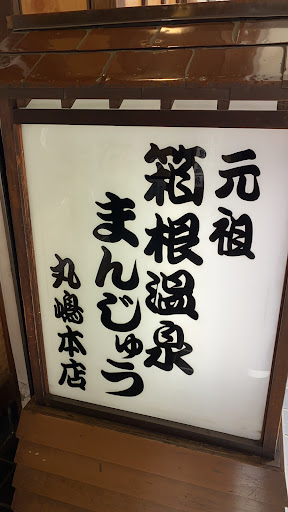 元祖
箱根温泉
まんじゅう
丸嶋本店